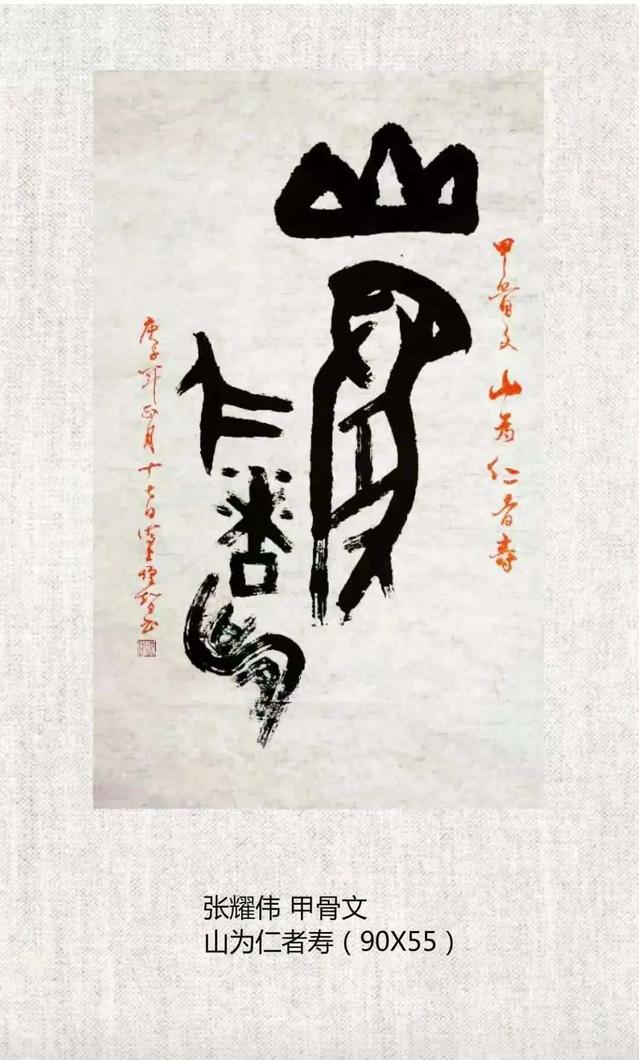 甲骨文 山为仁者寿
山为
仁者寿
庚子年正月十七日
张耀伟 甲骨文
山为仁者寿（90X55）